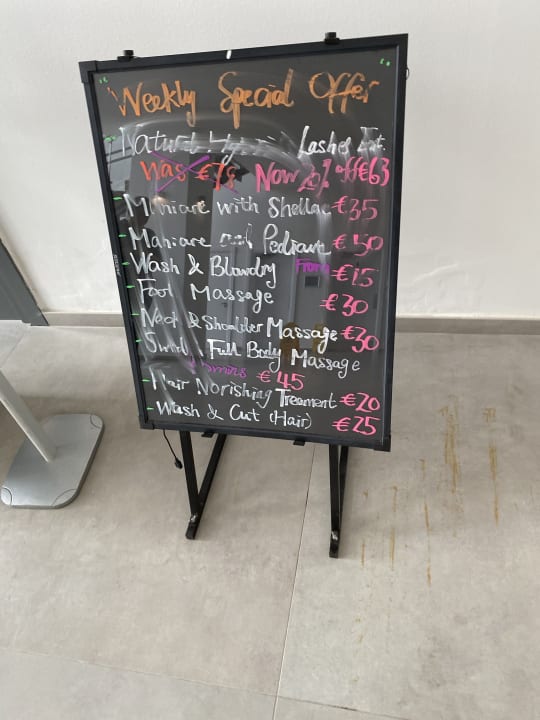 Weekly Special Offer
Natural Lashes Ext.
Was €78 Now 20% off €63
Manicare with Shellac €35
Manicare and Pedicure €50
Wash & Blowdry From €15
Foot Massage €30
Neck & Shoulder Massage €30
Full Body Massage
mins €45
Hair Norishing Treament €20
Wash & Cut (Hair) €25